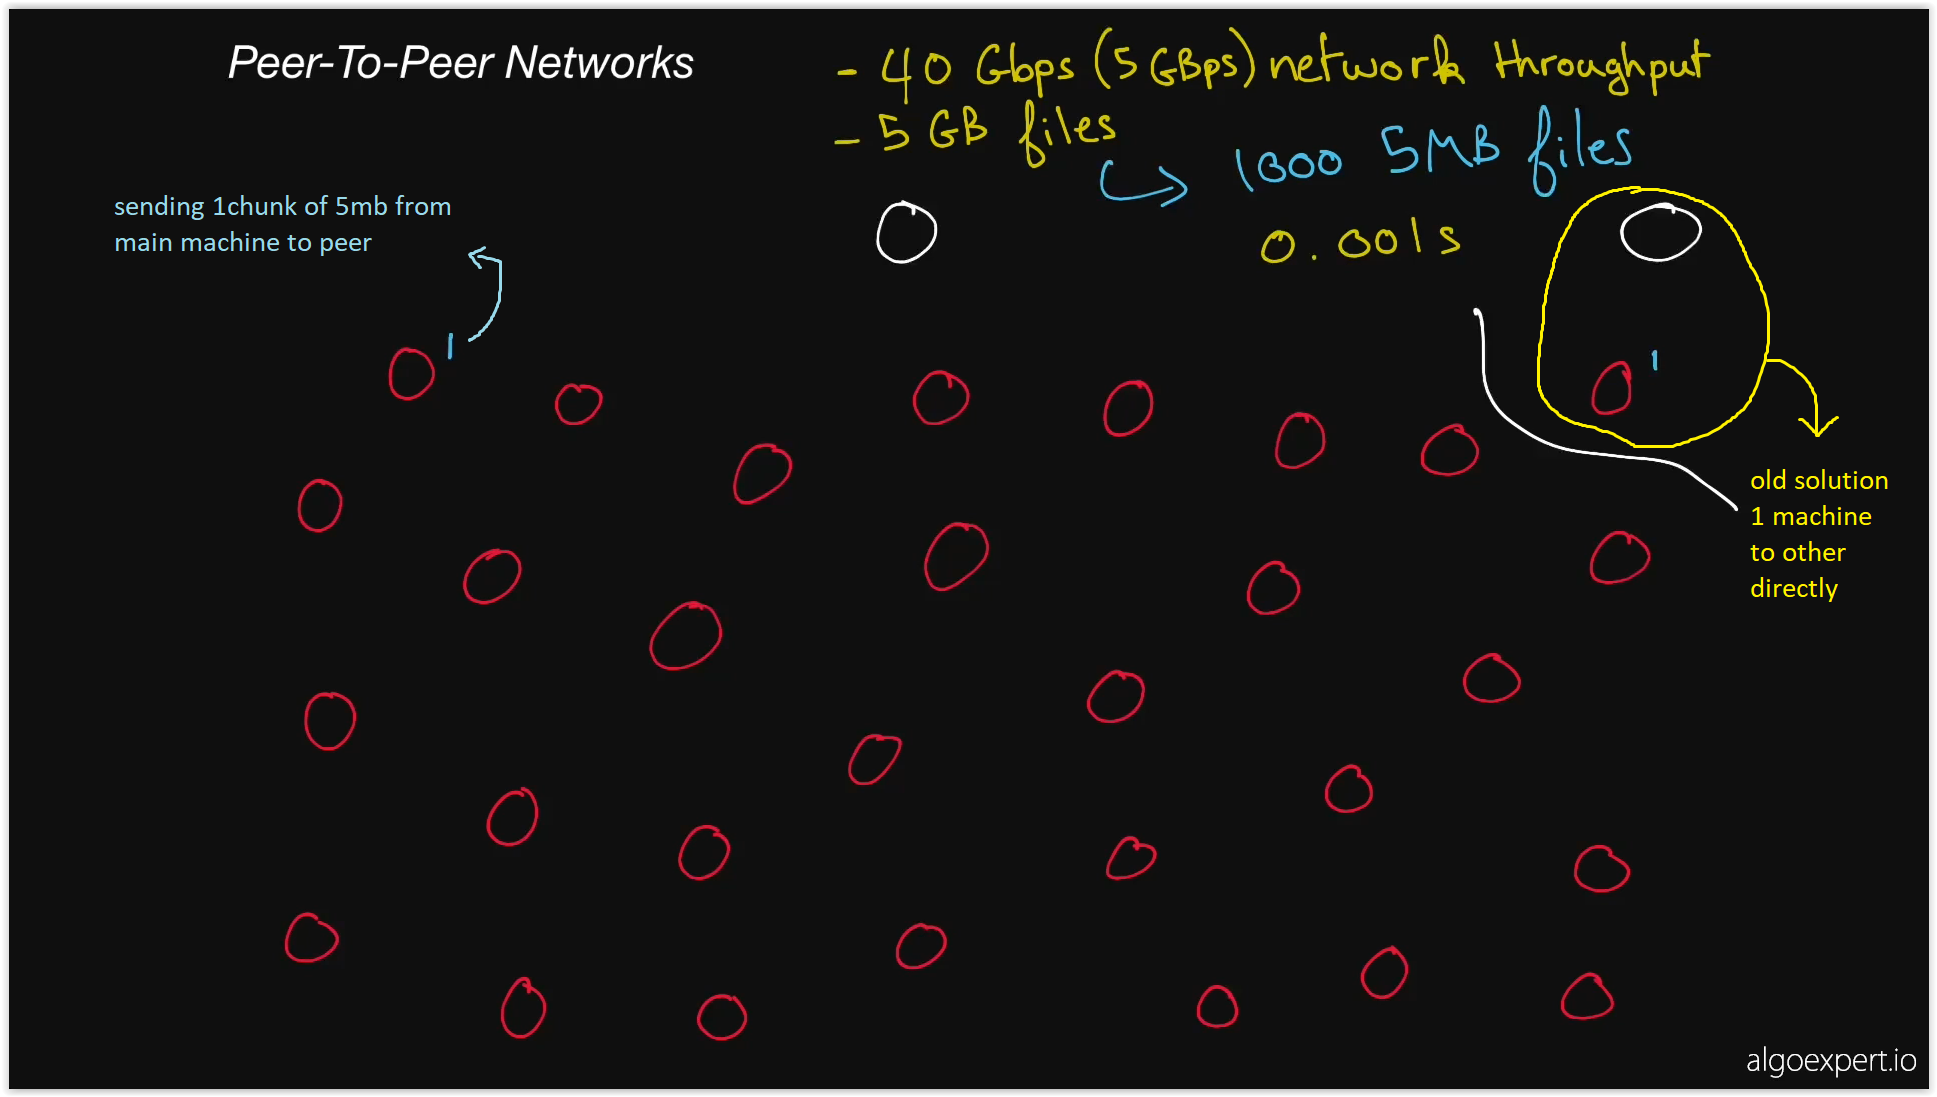 Peer-To-Peer Networks
- 40 Gbps (5 GBps) network throughput
- 5 GB files
1000 5MB files
0.001s
sending 1chunk of 5mb from
main machine to peer
1
1
old solution
1 machine
to other
directly
algoexpert.io